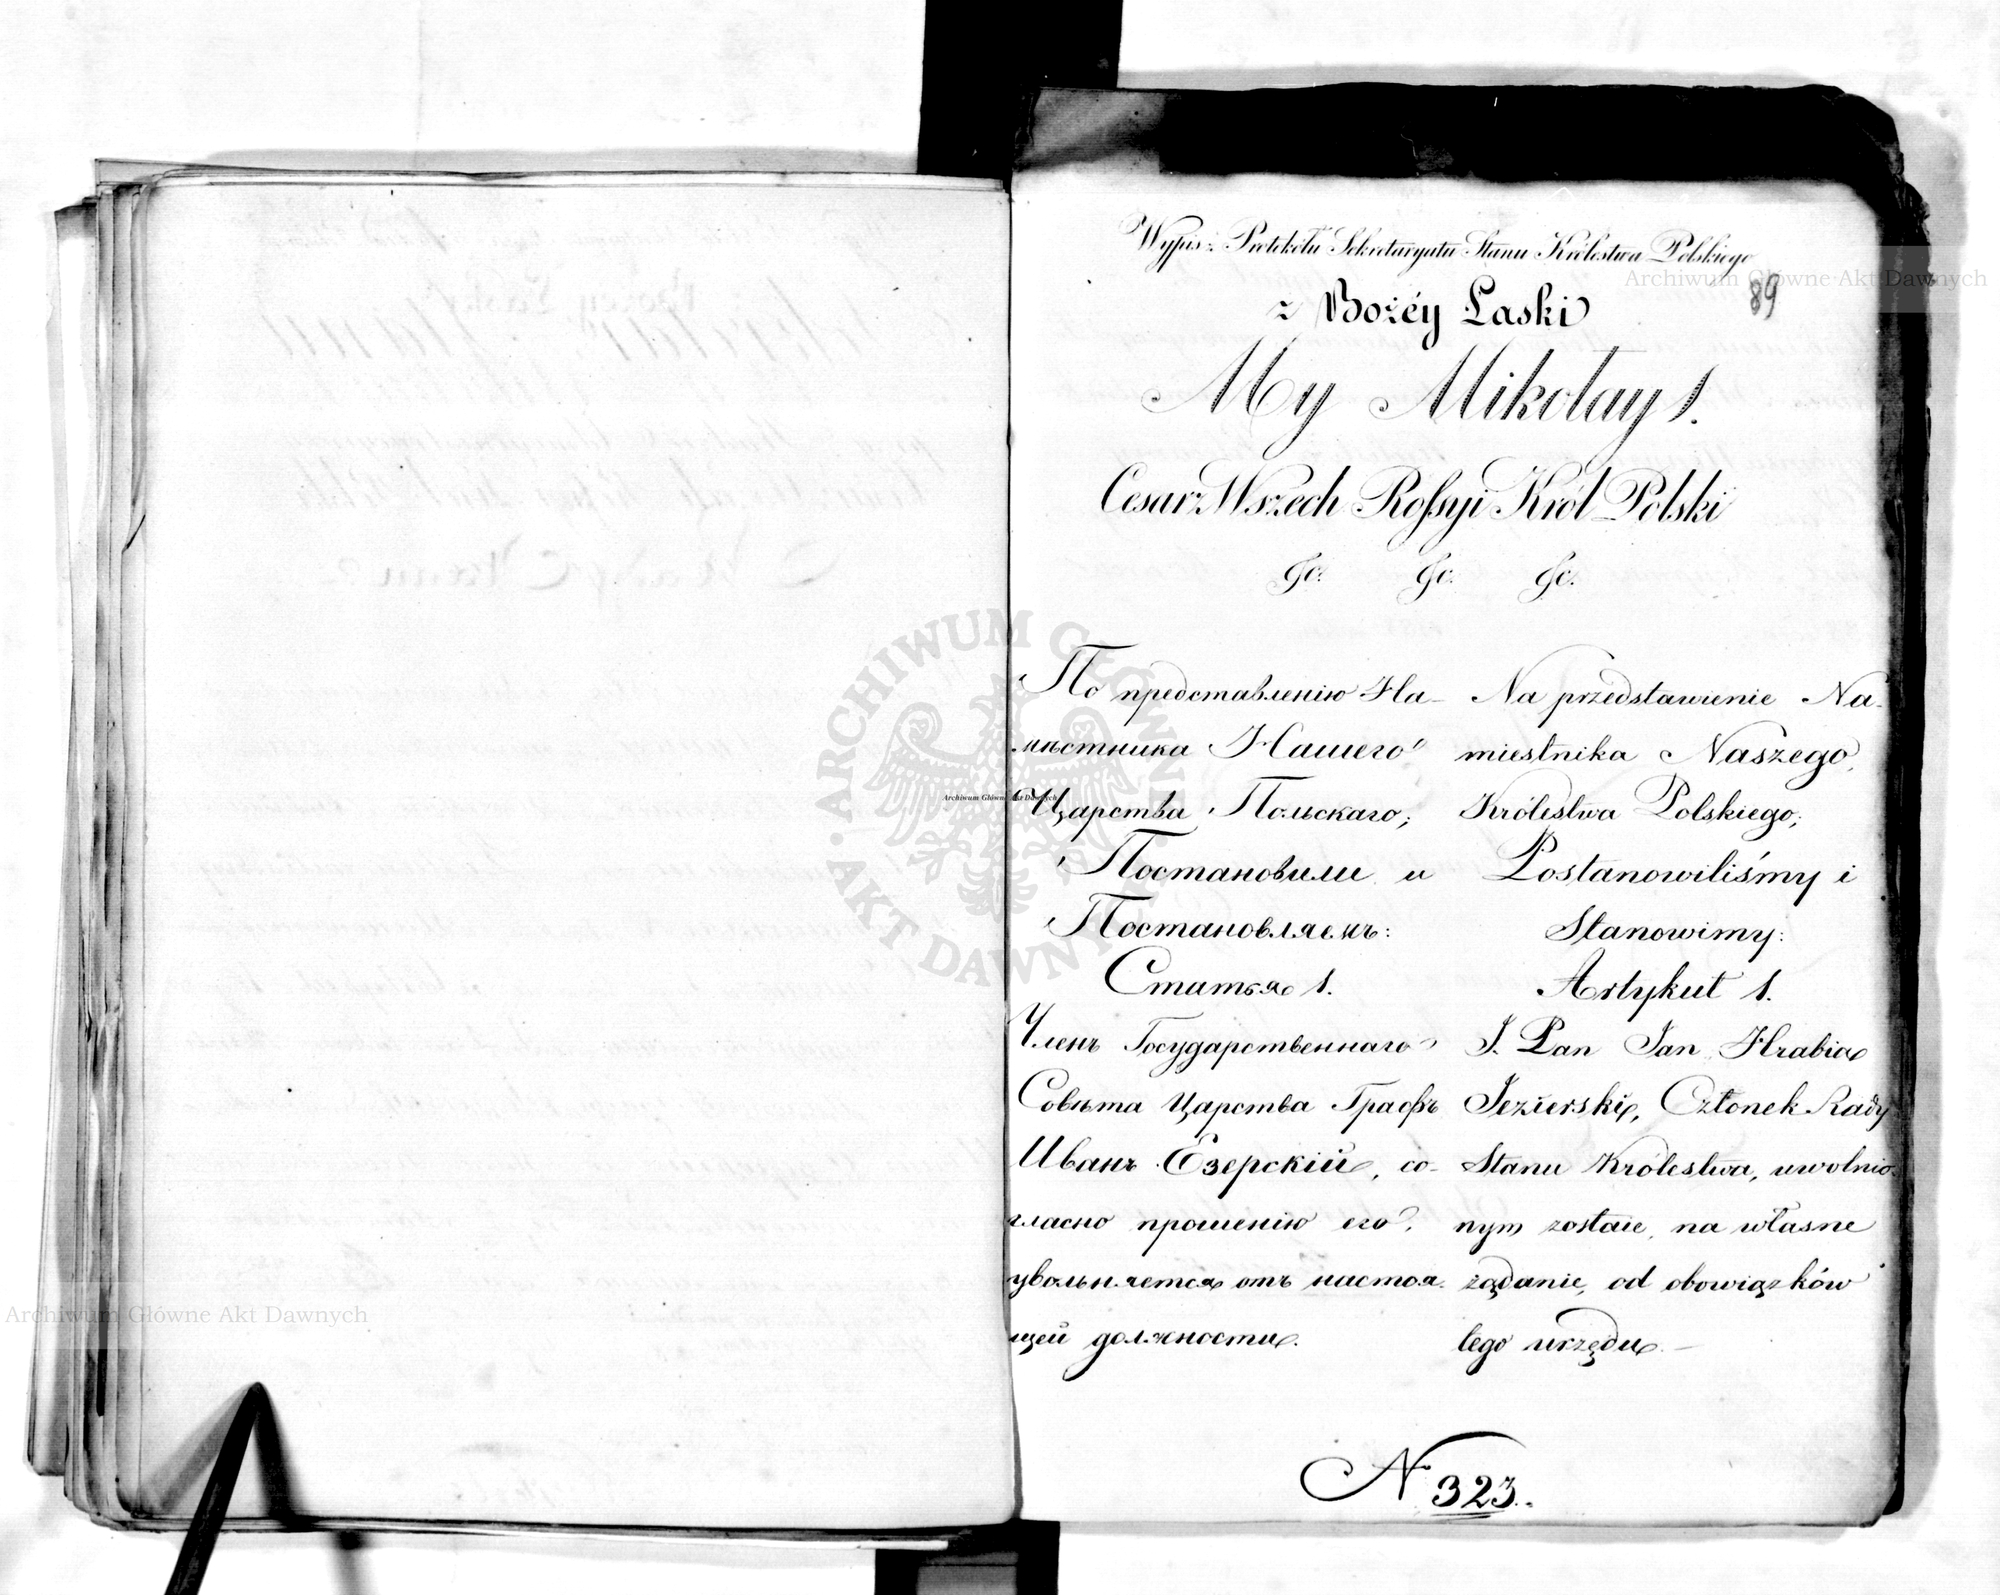 Wypis z Protokółu Sekretaryatu Stanu Królestwa Polskiego
89
z Bożéy Łaski
My Mikołay 1.
Cesarz Wszech Rossyi Król Polski
&c. &c. &c.
По представленію На-
мѣстника Нашего
Царства Польскаго;
Постановили и
Постановляемъ:
Статья 1.
Членъ Государственнаго
Совѣта Царства Графъ
Иванъ Езерскій, со-
гласно прошенію его,
увольняется отъ настоя-
щей должности.
Na przedstawienie Na-
miestnika Naszego,
Królestwa Polskiego;
Postanowiliśmy i
Stanowimy:
Artykuł 1.
J. Pan Jan Hrabia
Jezierski, Członek Rady
Stanu Królestwa, uwolnio-
nym zostaie, na własne
żądanie, od obowiązków
tego urzędu.
N 323.
Archiwum Główne Akt Dawnych
ARCHIWUM GŁÓWNE · AKT DAWNYCH ·
Archiwum Główne Akt Dawnych
Archiwum Główne Akt Dawnych